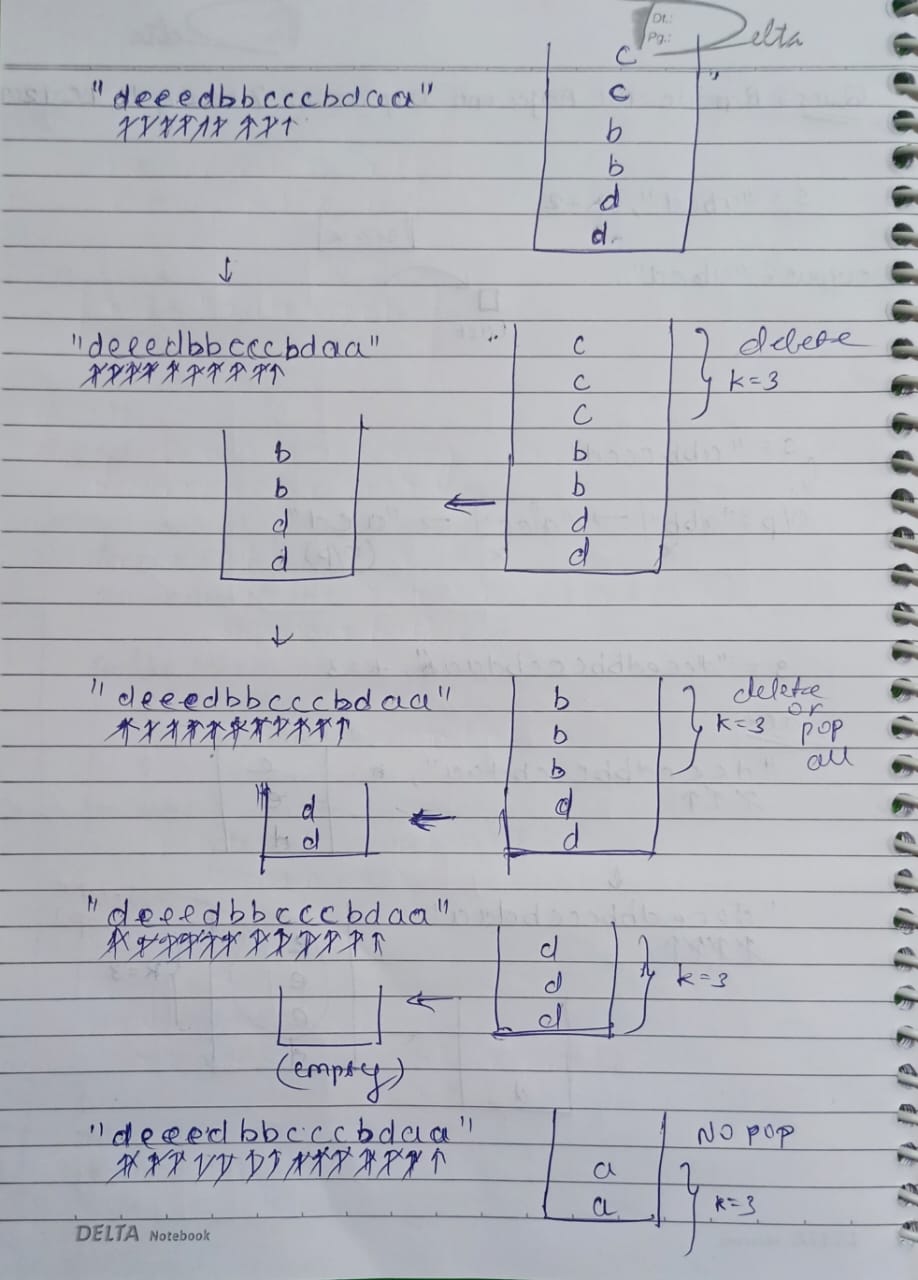 Dt.:
Pg.:
Delta
c
"deeedbbcccbdaa"
c
b
b
d
d
↓
"deeedbbcccbdaa"
c
delete
c
k=3
c
b
b
d
d
←
b
b
d
d
↓
"deeedbbcccbdaa"
b
b
b
d
d
k=3
delete
or
pop
all
←
d
d
"deeedbbcccbdaa"
d
d
d
k=3
←
(empty)
"deeedbbcccbdaa"
No pop
a
a
k=3
DELTA Notebook